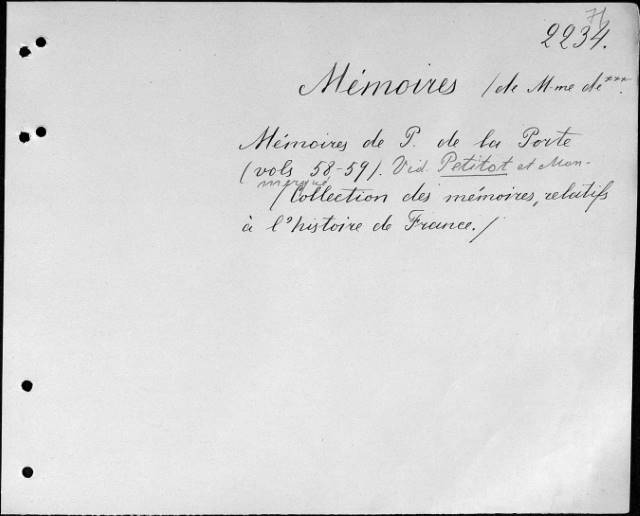 71
2234.
Mémoires /de M-me de***.
Mémoires de P. de la Porte
(vols 58-59). Vid. Petitot et Mon-
merqué
/Collection des mémoires, relatifs
à l'histoire de France./